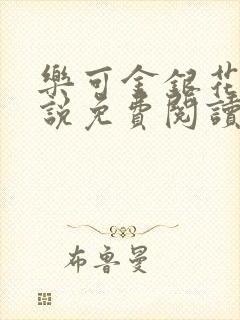 樂可金銀花
說免費閱讀
布魯曼